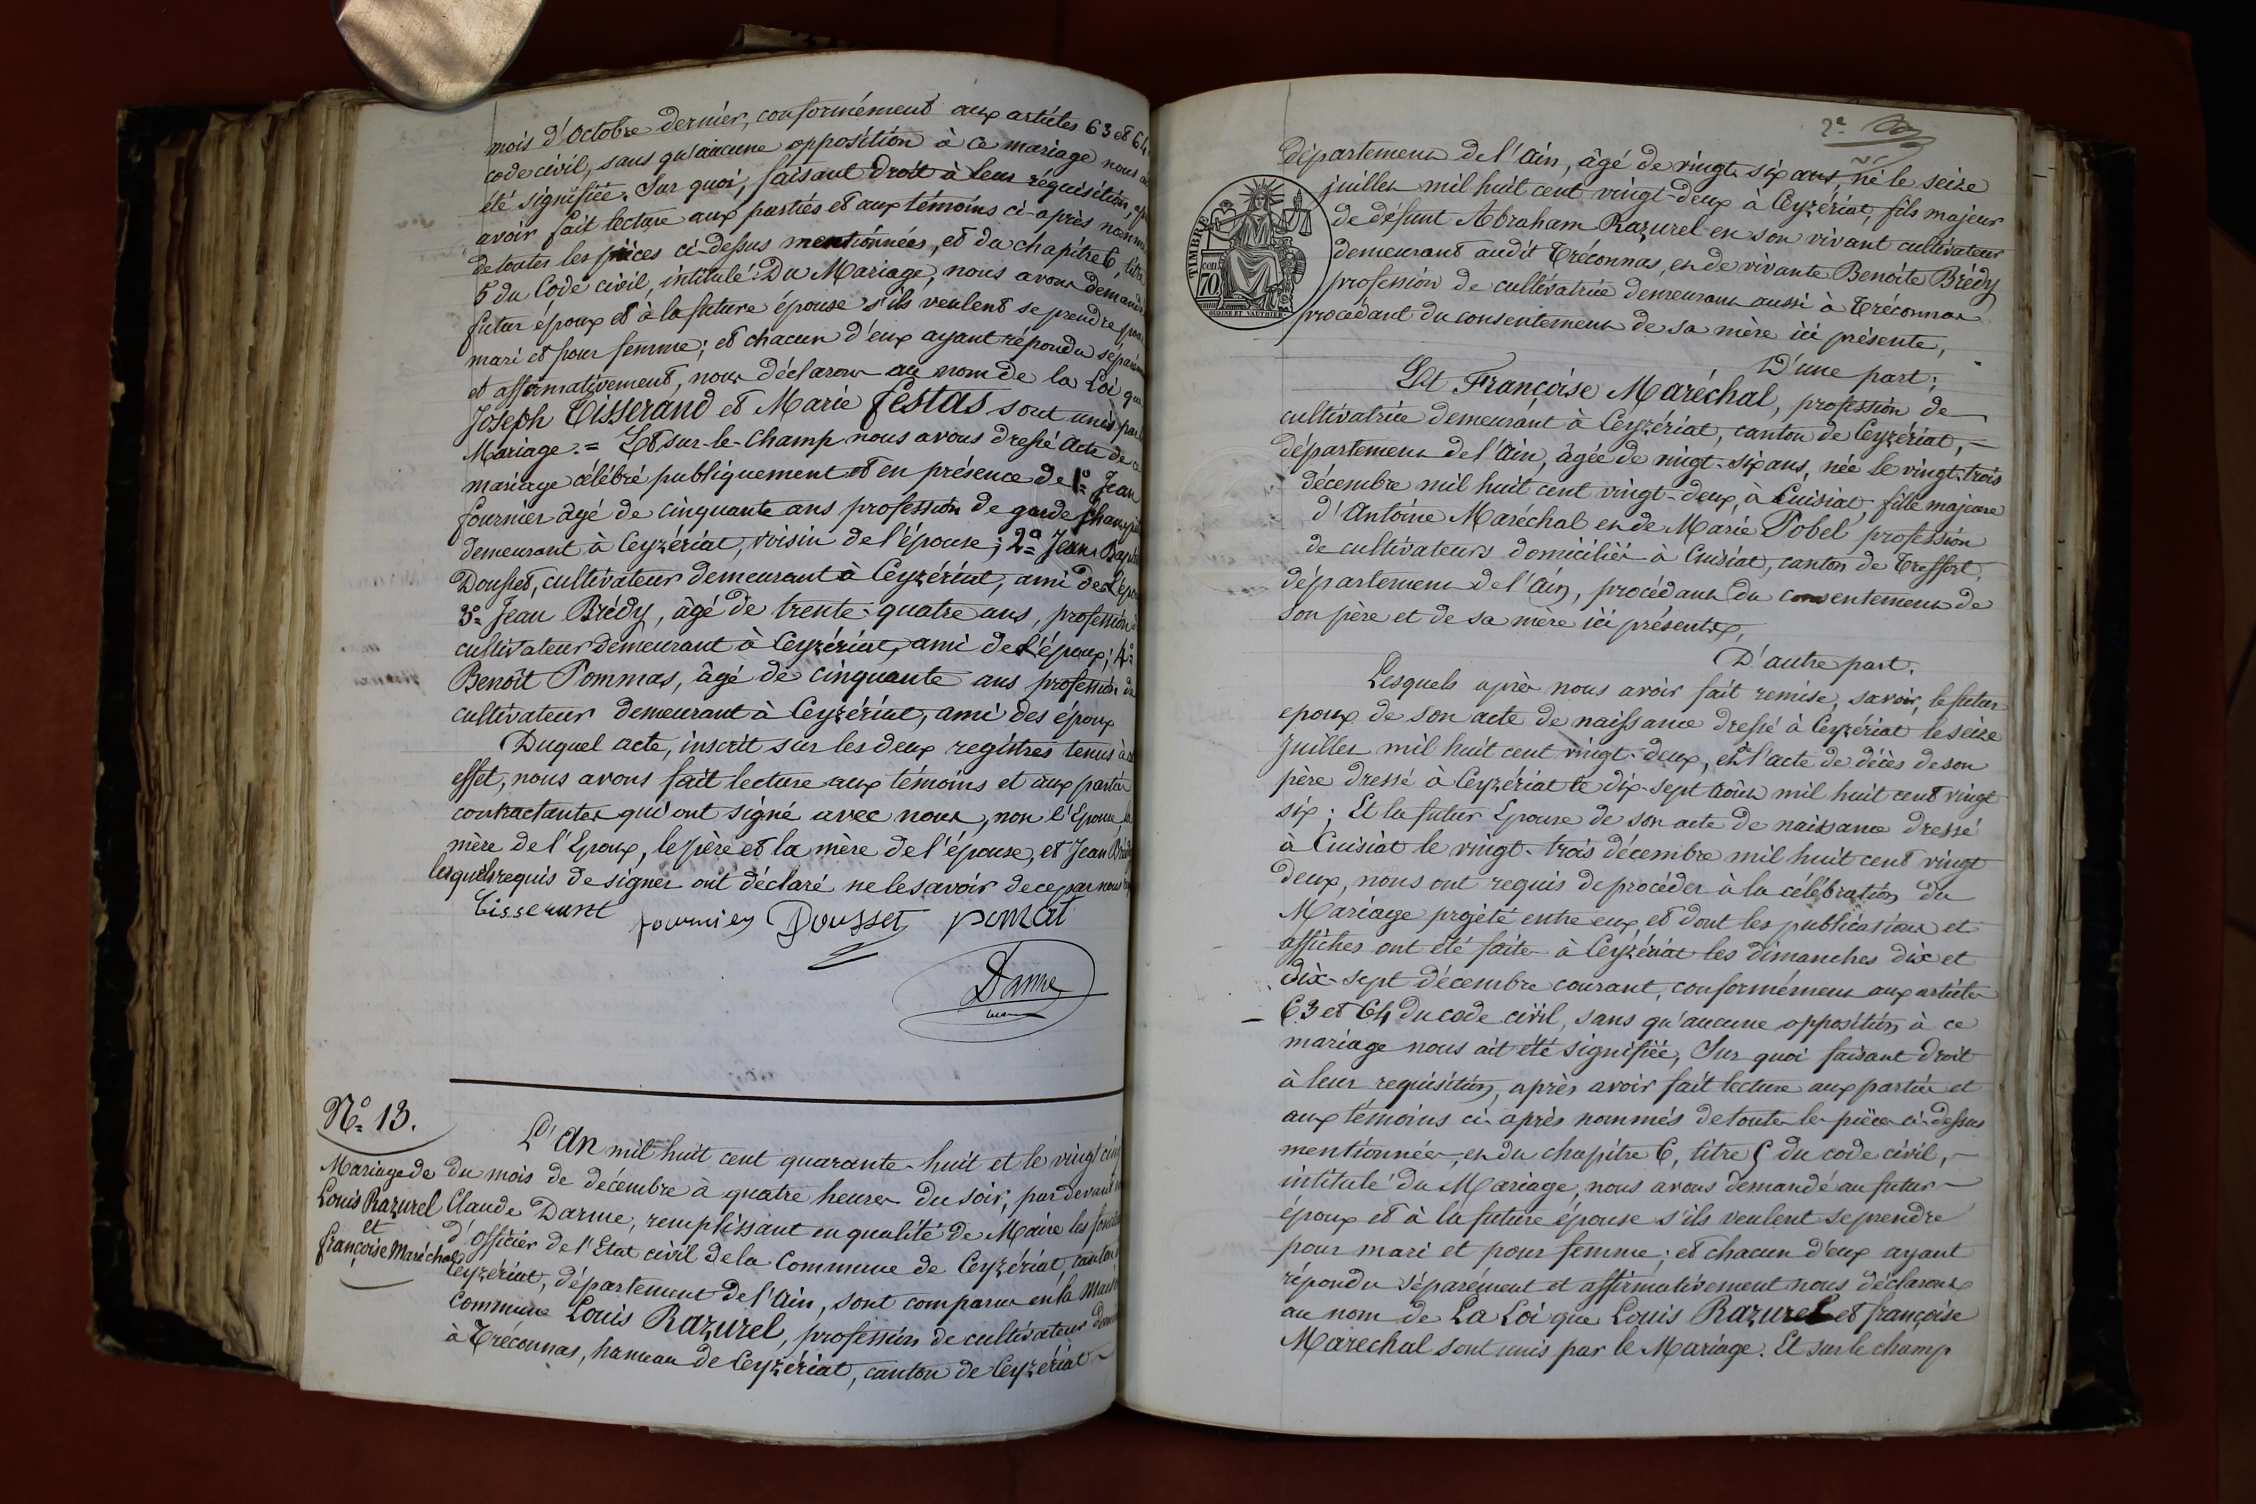 mois d'Octobre dernier, conformément aux articles 63 et 64
code civil, sans qu'aucune opposition à ce mariage nous
été signifiée. Sur quoi, faisant droit à leur réquisition,
avoir fait lecture aux parties et aux témoins ci-après
de toutes les pièces ci-dessus mentionnées, et du chapitre 6,
5 du Code civil, intitulé: Du Mariage, nous avons
futur époux et à la future épouse s'ils veulent se prendre
mari et pour femme; et chacun d'eux ayant répondu
et affirmativement, nous déclarons au nom de la Loi
Joseph Tisserand et Marie Festas sont unis
Mariage. = Et sur-le-champ nous avons dressé Acte de
mariage célébré publiquement et en présence de 1º Jean
fournier âgé de cinquante ans profession de garde
demeurant à Ceyzériat, voisin de l'épouse; 2º Jean
Dousset, cultivateur demeurant à Ceyzériat, ami de
3º Jean Brédy, âgé de trente-quatre ans, profession
cultivateur demeurant à Ceyzériat, ami de l'époux; 4º
Benoît Pommas, âgé de cinquante ans profession de
cultivateur demeurant à Ceyzériat, ami des époux
Duquel acte, inscrit sur les deux registres tenus à
effet, nous avons fait lecture aux témoins et aux parties
contractantes qui ont signé avec nous, non l'Epouse,
mère de l'Epoux, le père et la mère de l'épouse, et Jean
lesquels requis de signer ont déclaré ne le savoir de ce par nous
Tisserant fournier Dousset
Darme
Nº 13.
Mariage de
Louis Razurel
et
françoise Maréchal
L'An mil huit cent quarante-huit et le vingt
du mois de décembre à quatre heures du soir, par devant
Claude Darme, remplissant en qualité de Maire les
d'officier de l'Etat civil de la Commune de Ceyzériat, canton
Ceyzériat, département de l'Ain, sont comparus en la
Commune Louis Razurel, profession de cultivateur
à Tréconnas, hameau de Ceyzériat, canton de Ceyzériat
2e
département de l'Ain, âgé de vingt six ans, né le seize
juillet mil huit cent vingt-deux à Ceyzériat, fils majeur
de défunt Abraham Razurel en son vivant cultivateur
demeurant audit Tréconnas, et de vivante Benoite Brédy
profession de cultivatrice demeurant aussi à Tréconnas
procédant du consentement de sa mère ici présente,
D'une part;
TIMBRE
70
Et Françoise Maréchal, profession de
cultivatrice demeurant à Ceyzériat, canton de Ceyzériat,
département de l'Ain, âgée de vingt-six ans, née le vingt-trois
décembre mil huit cent vingt-deux, à Cuisiat, fille majeure
d'Antoine Maréchal et de Marie Pobel profession
de cultivateurs domiciliés à Cuisiat, canton de Treffort,
département de l'Ain, procédant du consentement de
son père et de sa mère ici présents,
D'autre part.
Lesquels après nous avoir fait remise, savoir, le futur
epoux de son acte de naissance dressé à Ceyzériat le seize
Juillet mil huit cent vingt-deux, et l'acte de décès de son
père dressé à Ceyzériat le dix-sept Août mil huit cent vingt
six; Et la futur Epouse de son acte de naissance dressé
à Cuisiat le vingt-trois décembre mil huit cent vingt
deux, nous ont requis de procéder à la célébration du
Mariage projeté entre eux, et dont les publications et
affiches ont été faites à Ceyzériat les dimanches dix et
dix-sept décembre courant, conformément aux articles
63 et 64 du code civil, sans qu'aucune opposition à ce
mariage nous ait été signifiée, Sur quoi faisant droit
à leur requisition, après avoir fait lecture aux parties et
aux témoins ci-après nommés de toutes les pièces ci-dessus
mentionnées, et du chapitre 6, titre 5 du code civil,
intitulé du Mariage, nous avons demandé au futur
époux et à la future épouse s'ils veulent se prendre
pour mari et pour femme; et chacun d'eux ayant
répondu séparément et affirmativement nous déclarons
au nom de La Loi que Louis Razurel et françoise
Marechal sont unis par le Mariage. Et sur le champ